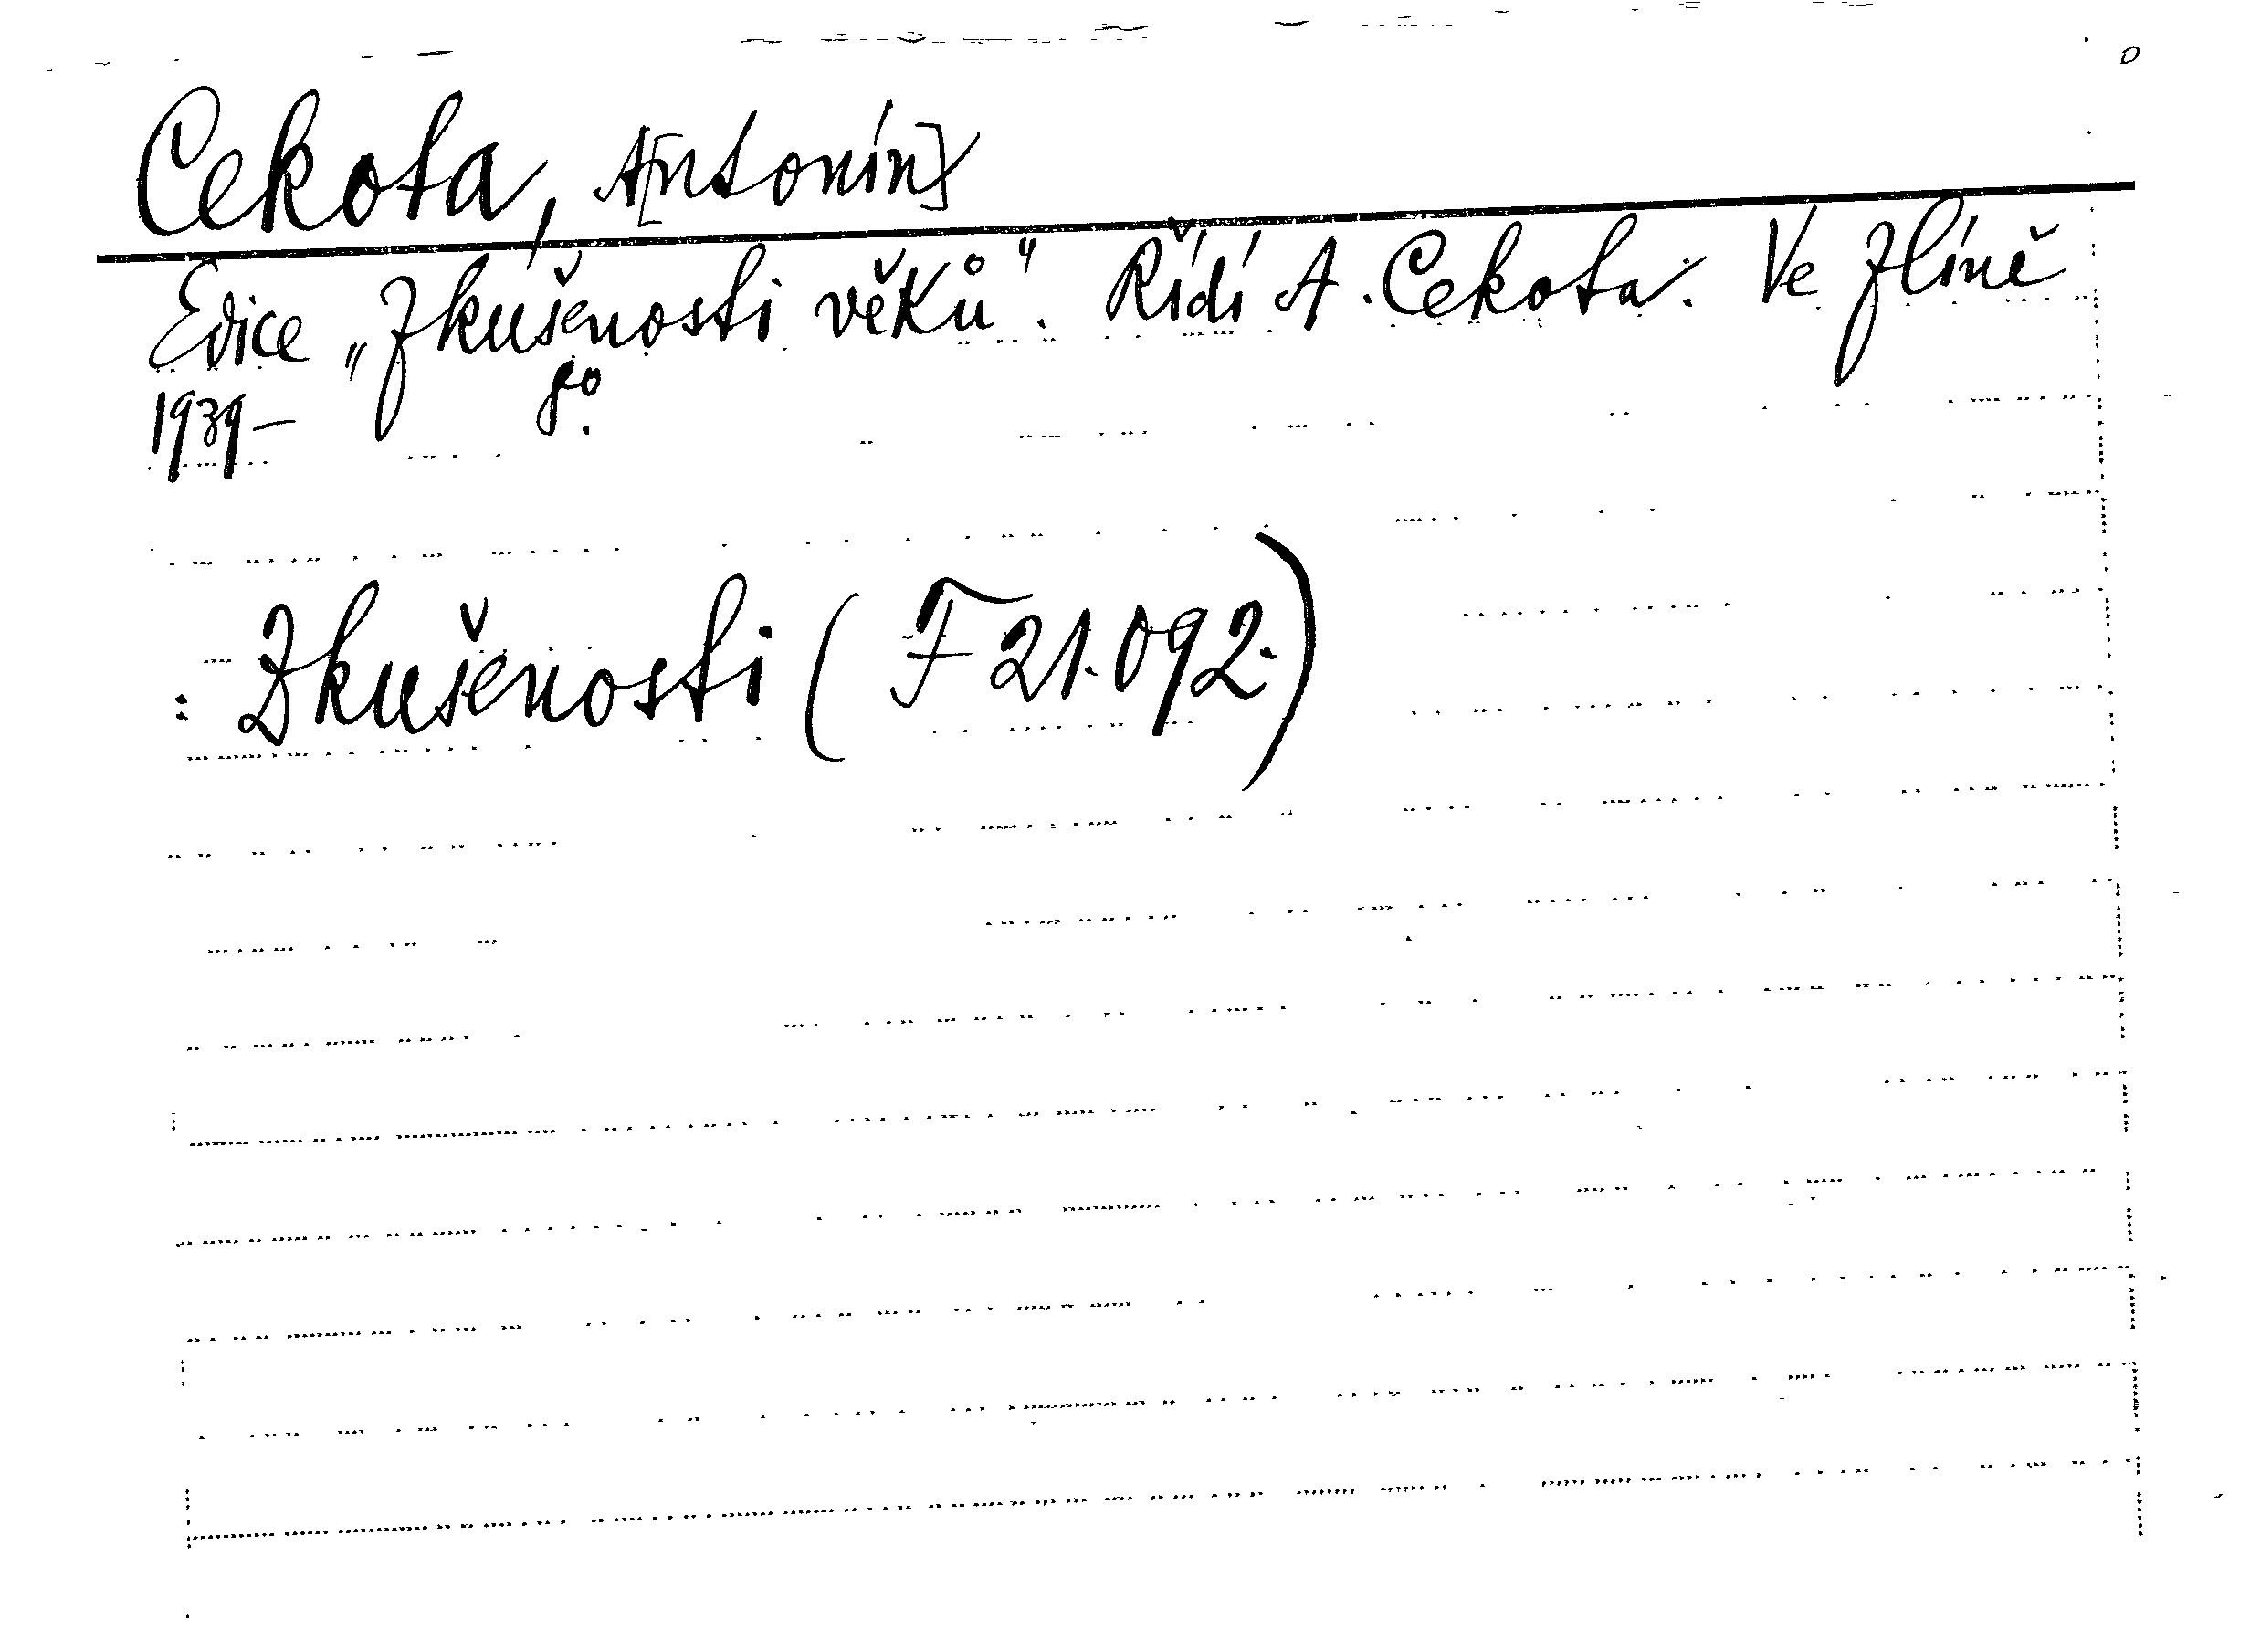 Cekota, A[ntonín]
Edice „Zkušenosti věků". Řídí A. Cekota. Ve Zlíně
1939– 8°.
: Zkušenosti ( F 21.092.)